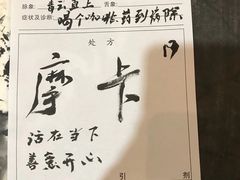 脉象： 舌象：
症状及诊断：喝个咖啡药到病除
处方
摩卡
活在当下
善意开心
引 剂